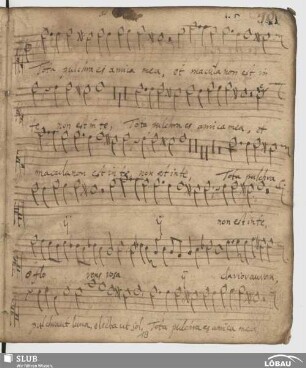 Tota pulchra es amica mea, et macula non est in
te, non est in te, Tota pulchra es amica mea, et
macula non est in te, non est in te, Tota pulchra
ij ij non est in te,
rosa ij
pulchra ut luna, electa ut sol, Tota pulchra es amica mea
13
SLUB
Wir führen Wissen.
LÖBAU